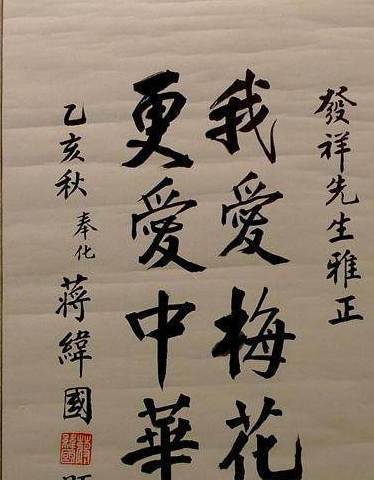 發祥先生雅正
我愛梅花
更愛中華
乙亥秋 奉化 蔣緯國